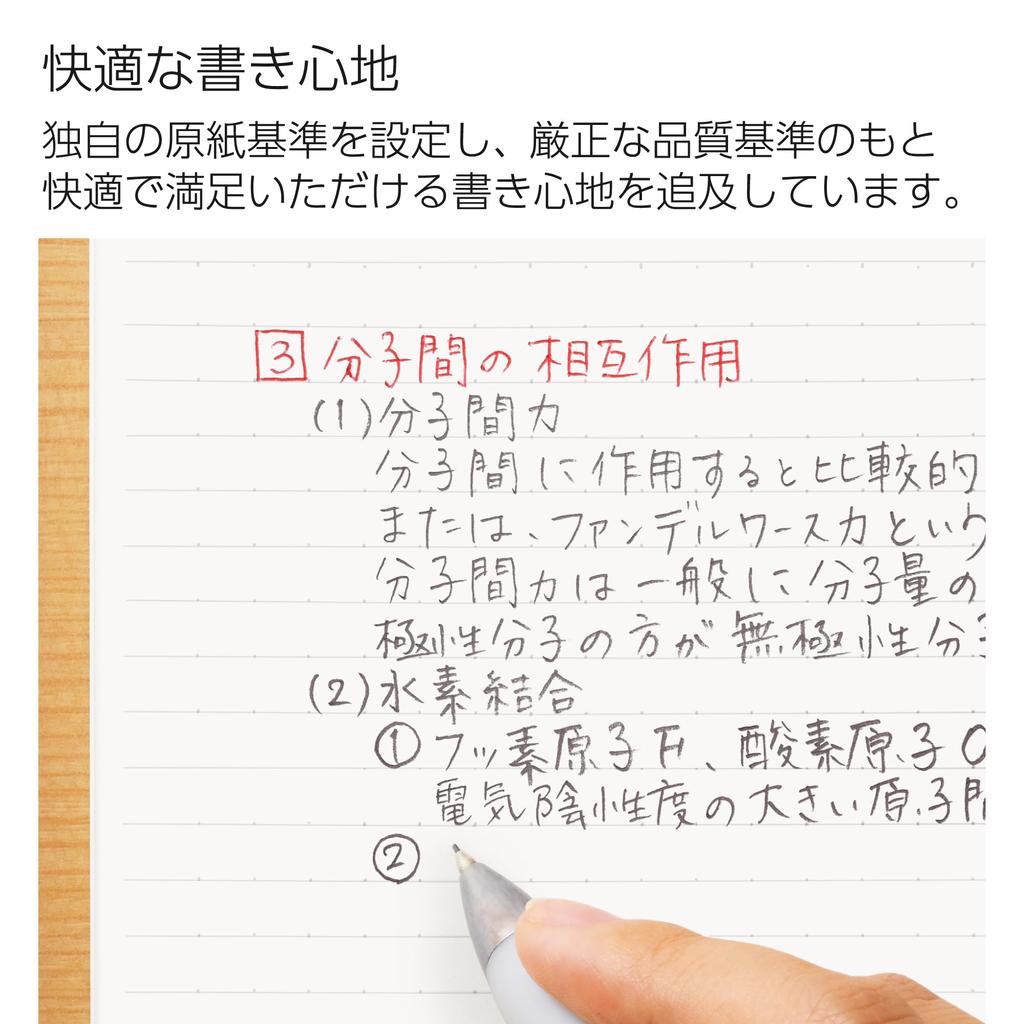 快適な書き心地
独自の原紙基準を設定し、厳正な品質基準のもと
快適で満足いただける書き心地を追及しています。
3 分子間の相互作用
(1)分子間力
分子間に作用すると比較的
または、ファンデルワース力という
分子間力は一般に分子量の
極性分子の方が無極性分子
(2)水素結合
① フッ素原子F、酸素原子O
電気陰性度の大きい原子間
②